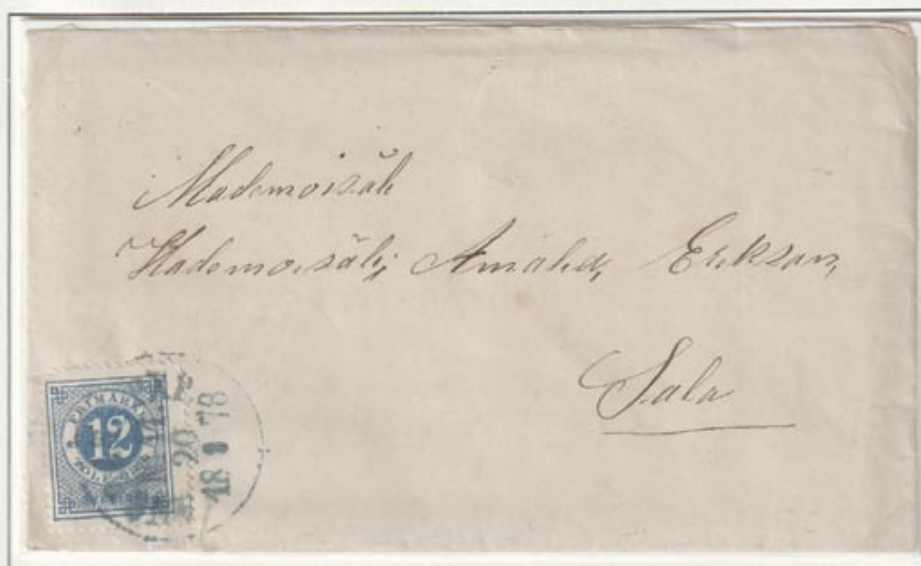 Mademoisäle
Mademoisäle, Amalia, Erikson,
Sala
FRIMÄRKE
12
TOLF ÖRE
20
18 1 78